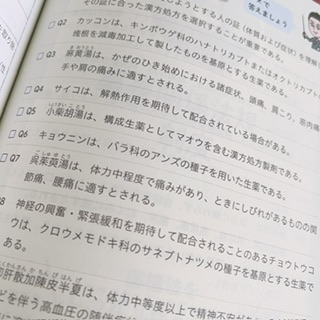 とする人の証(体質および症状)を理解し
その証に合った漢方処方を選択することが重要である。
Q2 カッコンは、キンポウゲ科のハナトリカブトまたはオクトリカブトの
塊根を減毒加工して製したものを基原とする生薬である。
Q3 麻黄湯は、かぜのひき始めにおける諸症状、頭痛、肩こり、筋肉痛
手や肩の痛みに適すとされる。
Q4 サイコは、解熱作用を期待して配合されている場合がある。
Q5 小柴胡湯は、構成生薬としてマオウを含む漢方処方製剤である。
Q6 キョウニンは、バラ科のアンズの種子を用いた生薬である。
Q7 呉茱萸湯は、体力中程度で痛みがあり、ときにしびれがあるものの関
節痛、腰痛に適すとされる。
8 神経の興奮・緊張緩和を期待して配合されることのあるチョウトウコ
ウは、クロウメモドキ科のサネブトナツメの種子を基原とする生薬で
ある。
肝散加陳皮半夏は、体力中等度以上で精神不安があ
どを伴う高血圧の随伴症